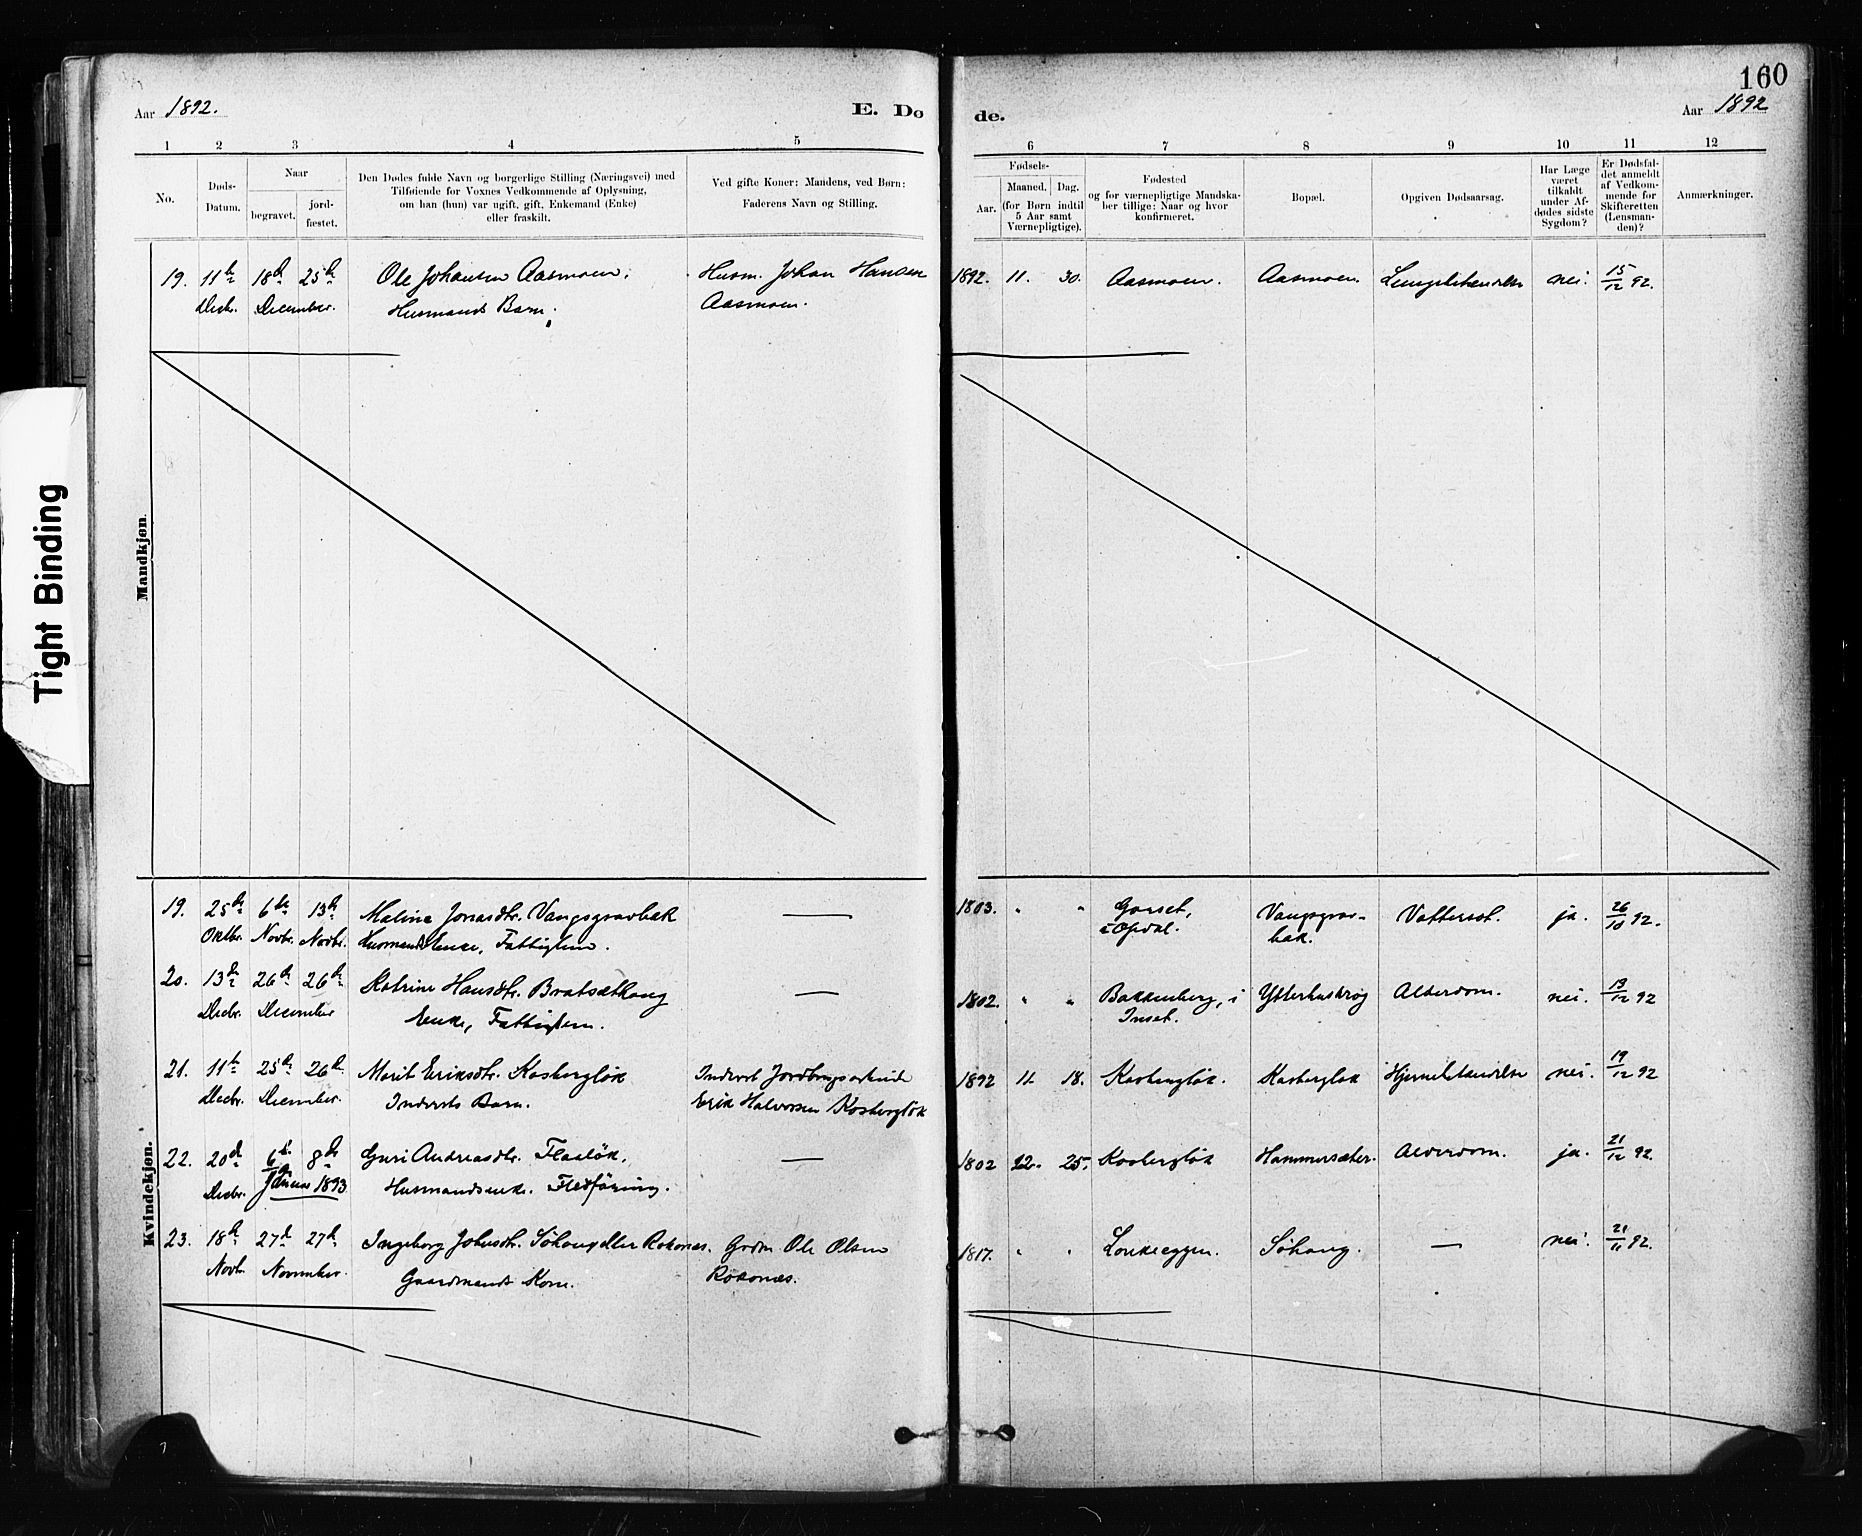 160
Aar 1892.
E. Dø
de.
Aar 1892
1 2 3 4 5 6 7 8 9 10 11 12
No.
Døds-
Datum.
Naar
begravet.
jord-
fæstet.
Den Dødes fulde Navn og borgerlige Stilling (Næringsvei) med
Tilføiende for Voxnes Vedkommende af Oplysning,
om han (hun) var ugift, gift, Enkemand (Enke)
eller fraskilt.
Ved gifte Koner: Mandens, ved Børn:
Faderens Navn og Stilling.
Fødsels-
Aar.
Maaned. Dag.
(for Børn indtil
5 Aar samt
Værnepligtige).
Fødested
og for værnepligtige Mandska-
ber tillige: Naar og hvor
konfirmeret.
Bopæl.
Opgiven Dødsaarsag.
Har Læge
været
tilkaldt
under Af-
dødes sidste
Sygdom?
Er Dødsfal-
det anmeldt
af Vedkom-
mende for
Skifteretten
(Lensman-
den)?
Anmærkninger.
Tight Binding
Mandkjøn.
19. 11te 18de 25de Ole Johansen Aasmoen. Husm. Johan Hansen 1892. 11. 30. Aasmoen. Aasmoen. nei. 15/12 92.
Decbr. December. Husmands Barn. Aasmoen.
Kvindekjøn.
19. 25de 6te 13de Malene Jonasdtr. Vangsgravbak — 1803. " " Gorset, Vangsgrav- Vattersot. ja. 26/10 92.
Oktbr. Novbr. Novbr. Husmandsenke, Fattiglem. i Opdal. bak.
20. 13de 26de 26de Katrine Hansdtr. — 1802. " " Bakkenberg, i Alderdom. nei. 19/12 92
Decbr. December Enke, Fattiglem. Inset.
21. 11te 25de 26de Marit Eriksdtr. Kosbergløk Inderst 1892 11. 18. Kosbergløk. Kosbergløk nei. 19/12 92
Decbr. December. Indersts Barn. Erik Halvorsen Kosbergløk
22. 20de 6te 8de Guri Andreasdtr. Flaaløk. — 1802 12. 25. Kosbergløk Hammersæter. Alderdom. ja. 21/12 92.
Decbr. Januar 1893 Husmandsenke. Fledføring.
23. 18de 27de 27de Ingeborg Johnsdtr. Søhaug eller Roknæs. Grdm. Ole Olsen 1817. " " Søhaug. — nei. 21/11 92.
Novb. November. Gaardmands Kone. Roknæs.